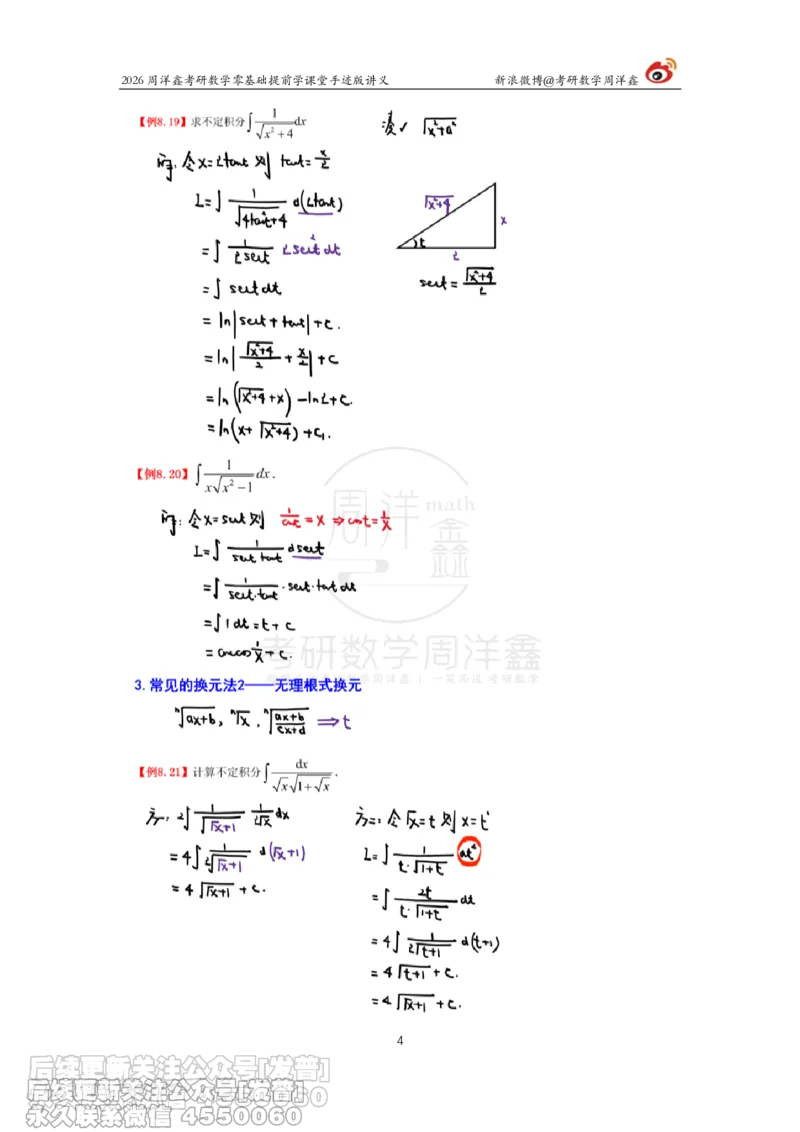 2026 周洋鑫考研数学零基础提前学课堂手述版讲义 新浪微博@考研数学周洋鑫
【例8.19】求不定积分∫ 1/√(x²+4) dx
凑✓ √(x²+a²)
解: 令x=2tant 则 tant=x/2
L=∫ 1/√(4tan²t+4) d(2tant)
=∫ 1/(2sect) 2sec²t dt
=∫ sect dt
= ln|sect+tant|+C.
=ln|√(x²+4)/2 + x/2|+C
=ln(√(x²+4)+x) -ln2+C.
=ln(x+√(x²+4))+C₁.
√(x²+4)
x
t
2
sect = √(x²+4)/2
【例8.20】∫ 1/(x√(x²-1)) dx.
解: 令x=sect 则 1/cost = x ⇒ cost = 1/x
L=∫ 1/(sect tant) dsect
=∫ 1/(sect·tant) · sect·tant dt
=∫ 1 dt = t+C
= arccos 1/x + C.
周洋鑫 math
考研数学周洋鑫
3.常见的换元法2——无理根式换元
ⁿ√(ax+b), ⁿ√x, ⁿ√((ax+b)/(cx+d)) ⇒ t
【例8.21】计算不定积分∫ dx/(√x√(1+√x)).
方一: 2∫ 1/√(√x+1) 1/(2√x) dx
=4∫ 1/(2√(√x+1)) d(√x+1)
=4√(√x+1)+C.
方二: 令√x=t 则 x=t²
L=∫ 1/(t·√(1+t)) dt²
=∫ 2t/(t·√(1+t)) dt
=4∫ 1/(2√(t+1)) d(t+1)
=4√(t+1)+C.
=4√(√x+1)+C.
4
后续更新关注公众号[发普]
后续更新关注公众号[发普]
永久联系微信 4550060